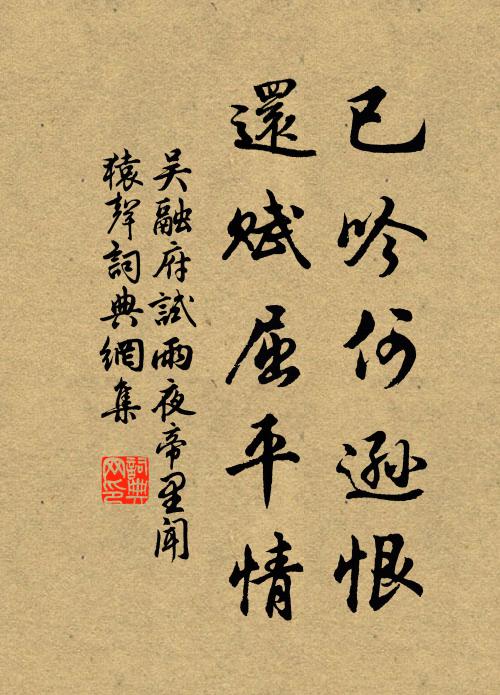 已吟何遜恨
還賦屈平情
吴融府試雨夜帝里聞
猿聲詞典網集
詞典
网印